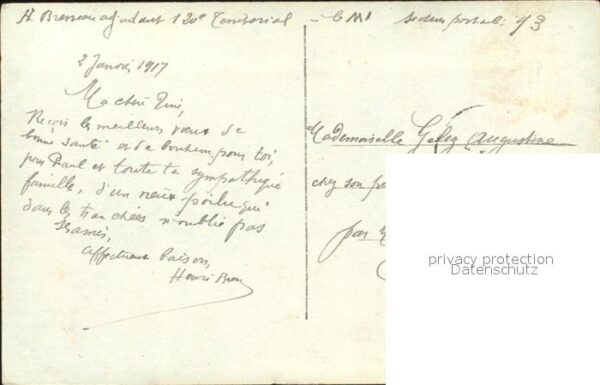 H Bresseau adjudant 120e Territorial - CMI secteur postal 93
2 Janvier 1917
Ma chère Titi,
Reçois les meilleurs vœux de
bonne santé et de bonheur pour toi,
pour Paul et toute ta sympathique
famille, d'un vieux poilu qui
dans les tranchées n'oublie pas
ses amis,
Affectueux baisers,
Henri
Mademoiselle Gélez Augustine
chez son
par
privacy protection
Datenschutz